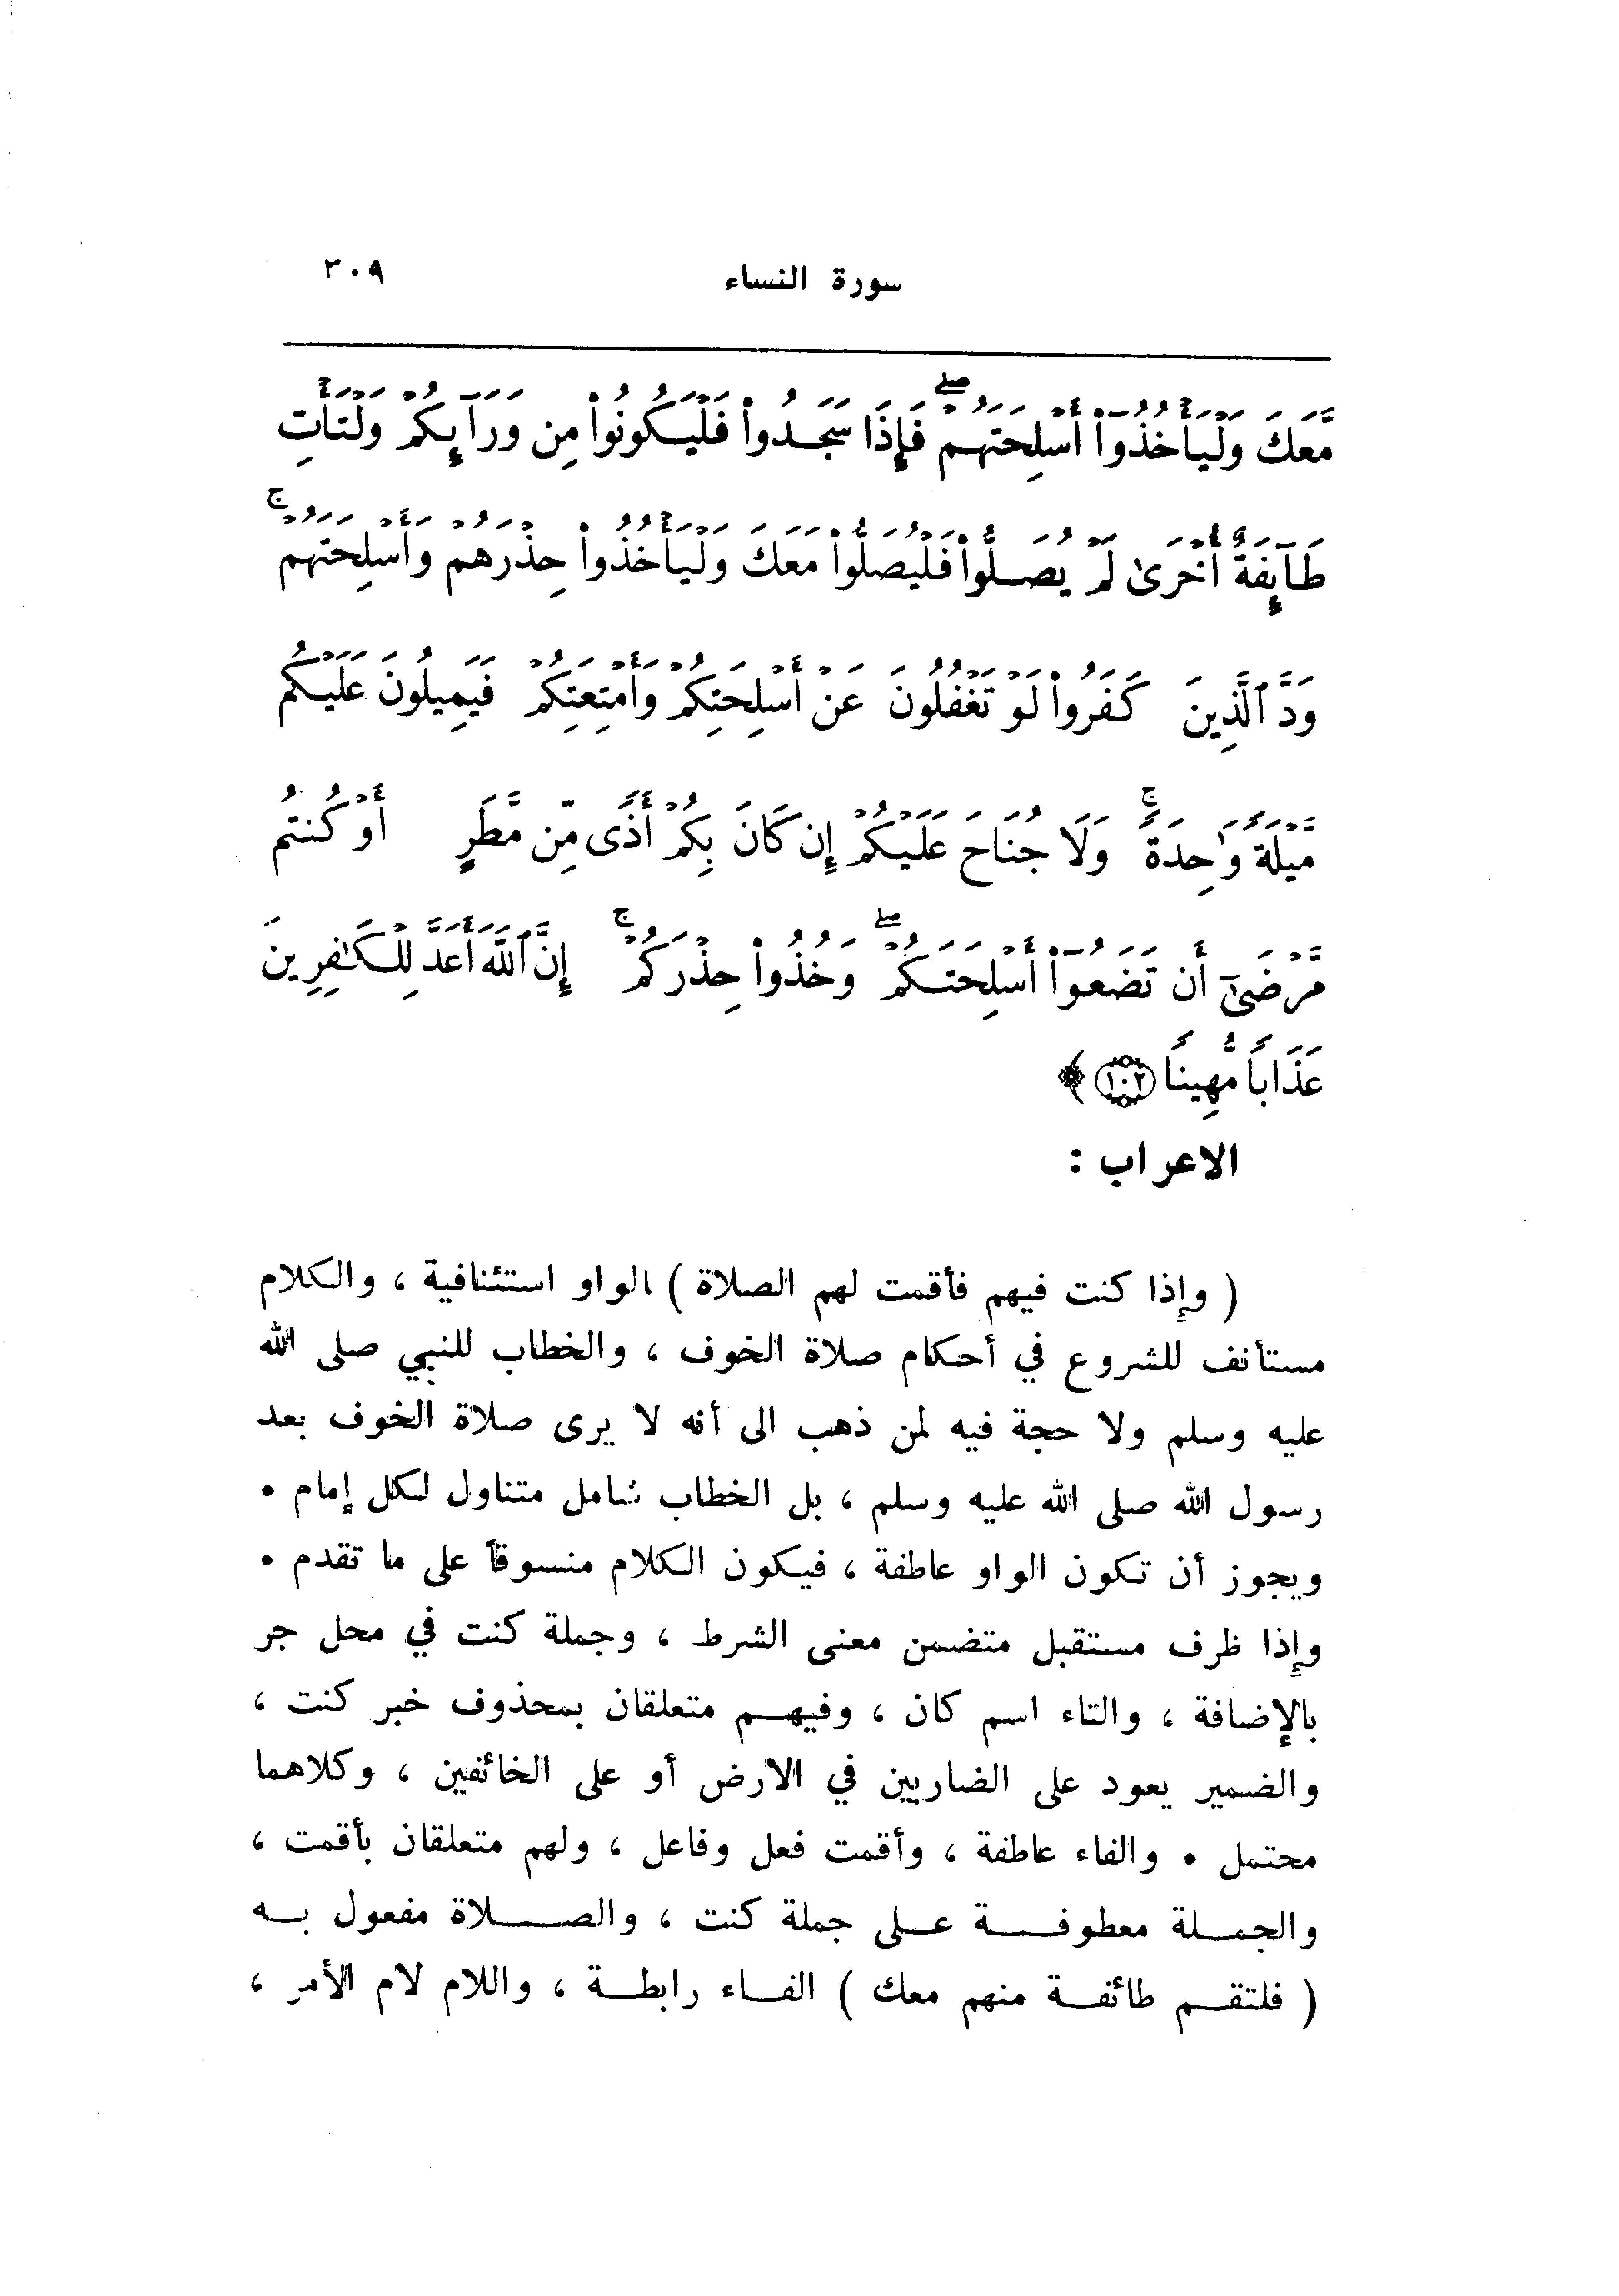 سورة النساء ٣٠٩
مَّعَكَ وَلْيَأْخُذُوٓاْ أَسْلِحَتَهُمْۖ فَإِذَا سَجَدُواْ فَلْيَكُونُواْ مِن وَرَآئِكُمْ وَلْتَأْتِ
طَآئِفَةٌ أُخْرَىٰ لَمْ يُصَلُّواْ فَلْيُصَلُّواْ مَعَكَ وَلْيَأْخُذُواْ حِذْرَهُمْ وَأَسْلِحَتَهُمْۚ
وَدَّ ٱلَّذِينَ كَفَرُواْ لَوْ تَغْفُلُونَ عَنْ أَسْلِحَتِكُمْ وَأَمْتِعَتِكُمْ فَيَمِيلُونَ عَلَيْكُم
مَّيْلَةً وَٰحِدَةًۚ وَلَا جُنَاحَ عَلَيْكُمْ إِن كَانَ بِكُمْ أَذًى مِّن مَّطَرٍ أَوْ كُنتُم
مَّرْضَىٰٓ أَن تَضَعُوٓاْ أَسْلِحَتَكُمْۖ وَخُذُواْ حِذْرَكُمْۚ إِنَّ ٱللَّهَ أَعَدَّ لِلْكَٰفِرِينَ
عَذَابًا مُّهِينًا ١٠٢ ﴾
الاعراب :
( وإذا كنت فيهم فأقمت لهم الصلاة ) الواو استئنافية ، والكلام
مستأنف للشروع في أحكام صلاة الخوف ، والخطاب للنبي صلى الله
عليه وسلم ولا حجة فيه لمن ذهب الى أنه لا يرى صلاة الخوف بعد
رسول الله صلى الله عليه وسلم ، بل الخطاب شامل متناول لكل إمام .
ويجوز أن تكون الواو عاطفة ، فيكون الكلام منسوقاً على ما تقدم .
وإذا ظرف مستقبل متضمن معنى الشرط ، وجملة كنت في محل جر
بالإضافة ، والتاء اسم كان ، وفيهم متعلقان بمحذوف خبر كنت ،
والضمير يعود على الضاربين في الارض أو على الخائفين ، وكلاهما
محتمل . والفاء عاطفة ، وأقمت فعل وفاعل ، ولهم متعلقان بأقمت ،
والجملة معطوفة على جملة كنت ، والصلاة مفعول به
( فلتقم طائفة منهم معك ) الفاء رابطة ، واللام لام الأمر ،